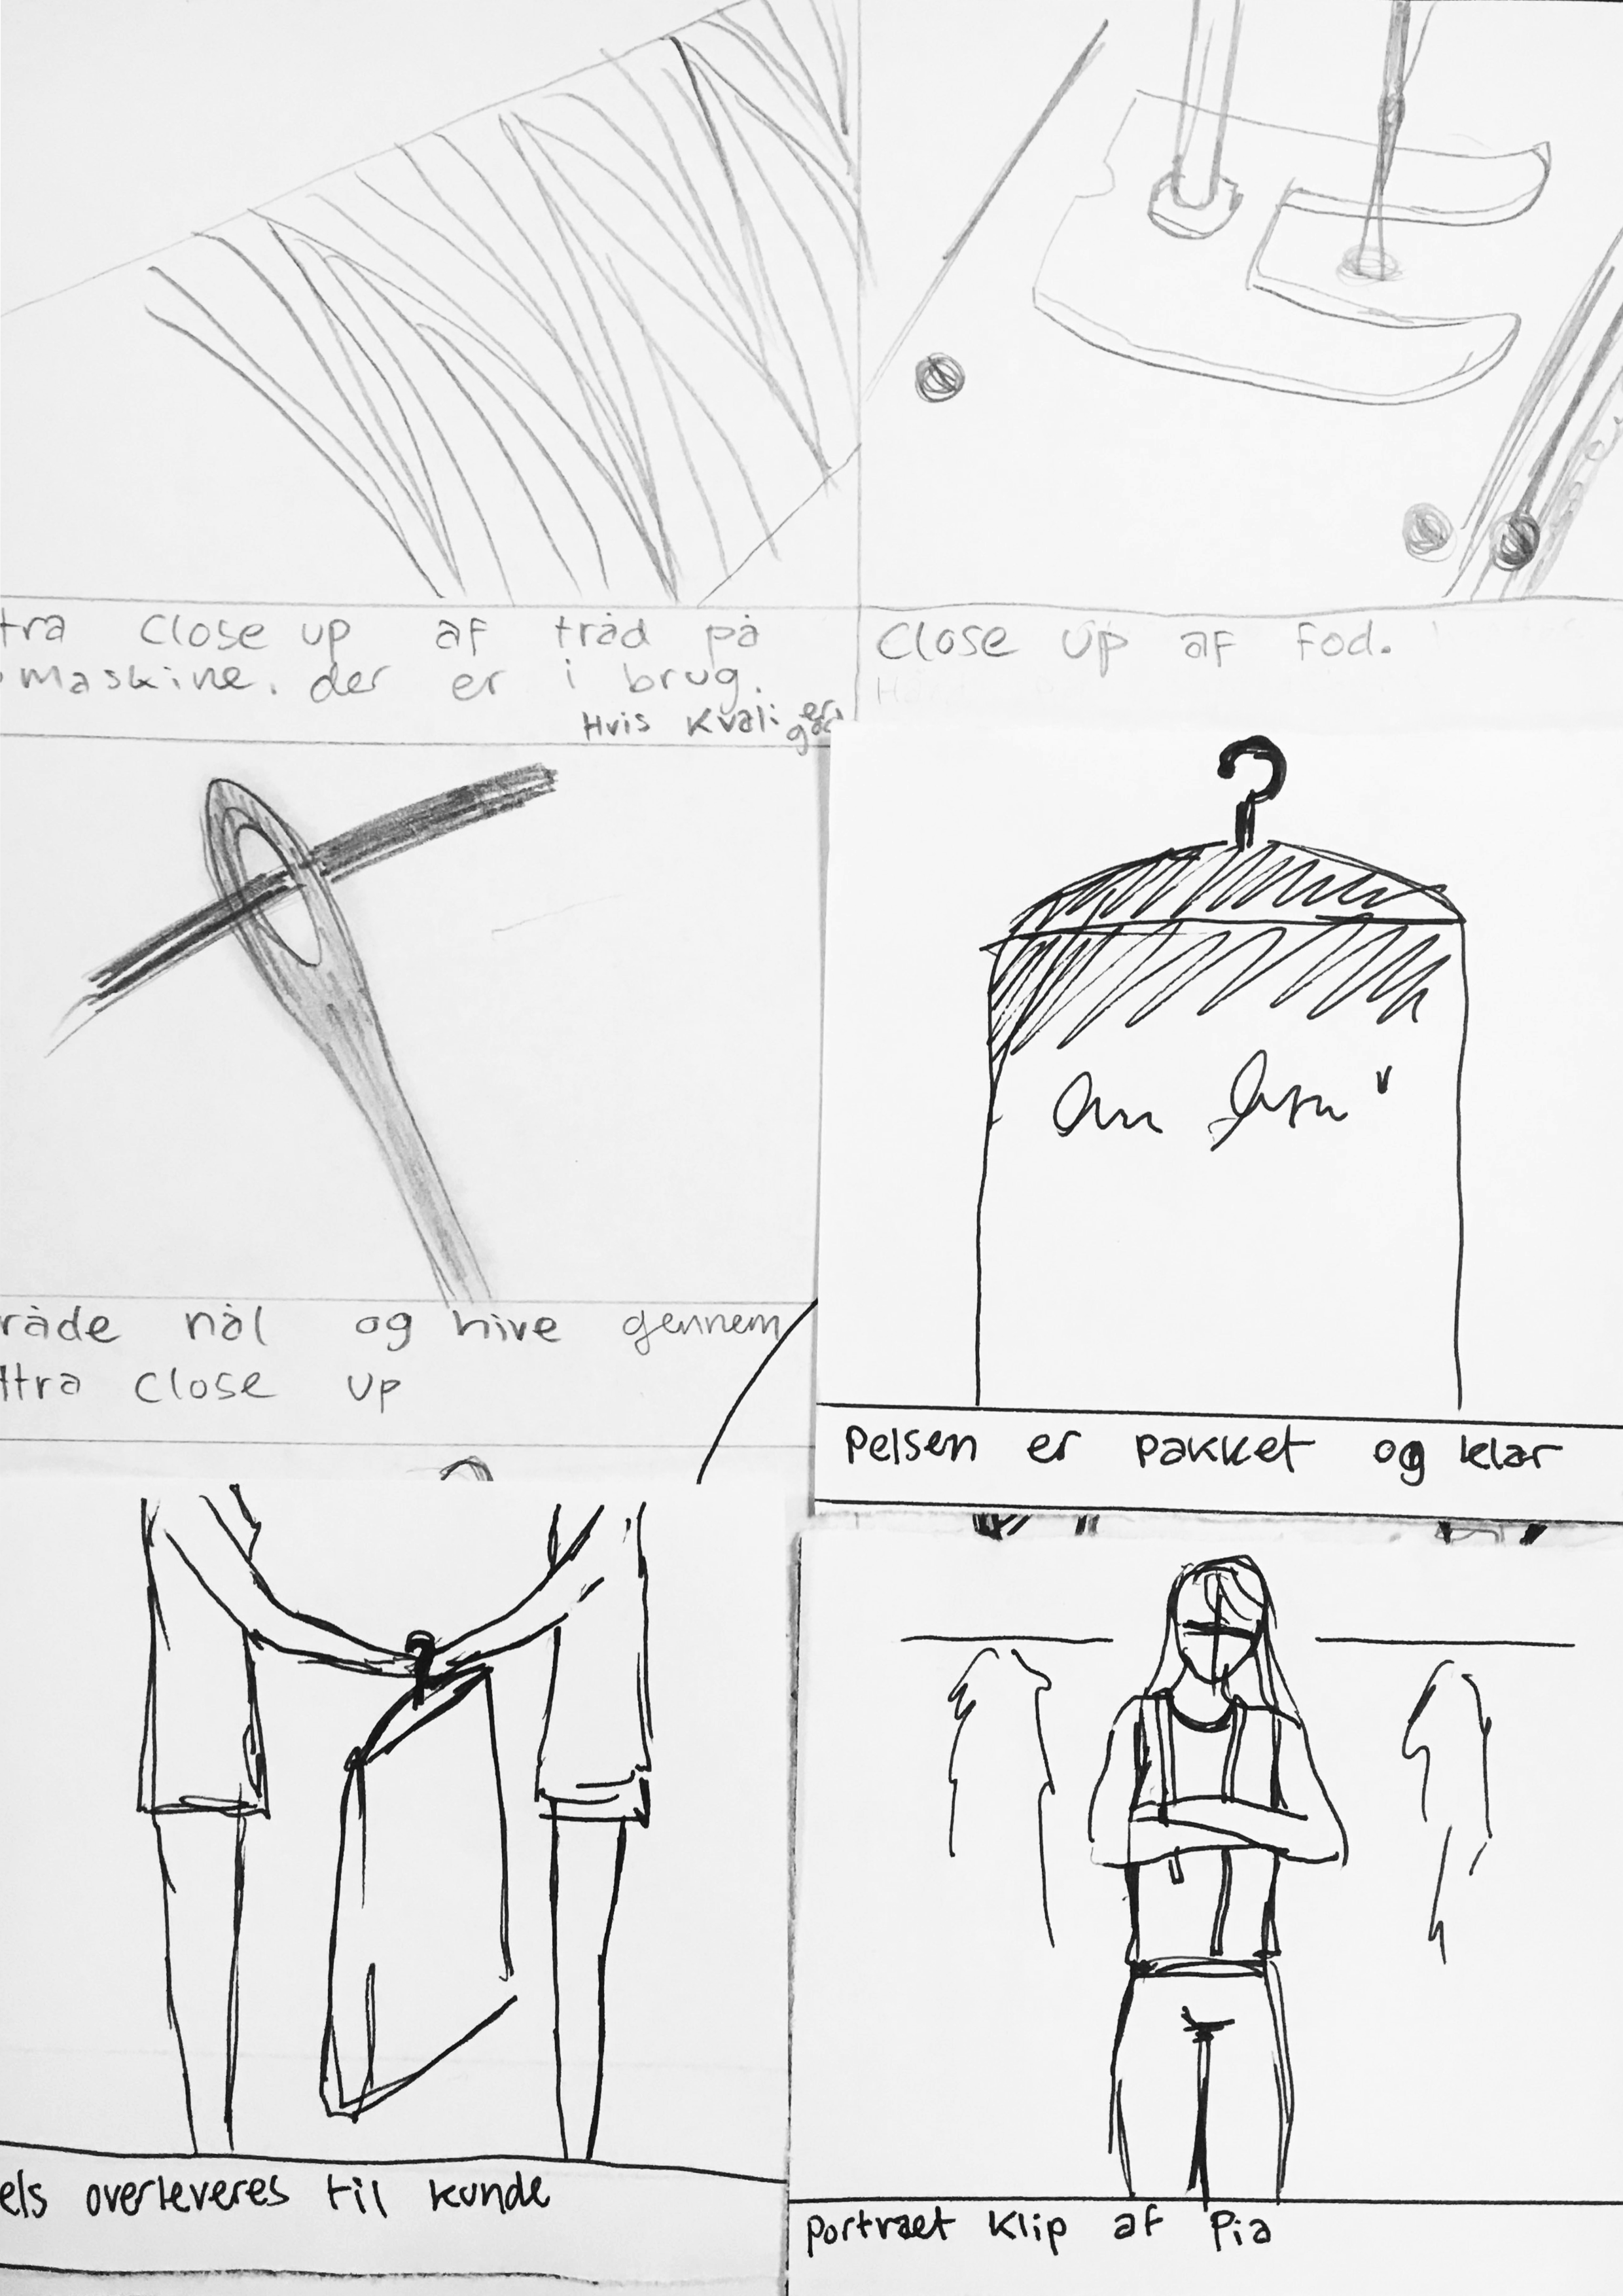 tra close up af tråd på
maskine. der er i brug.
Hvis Kvali
er
god
Close up af fod.
råde nål og hive gennem
ltra close up
Pelsen er pakket og klar
els overleveres til kunde
portræt klip af Pia